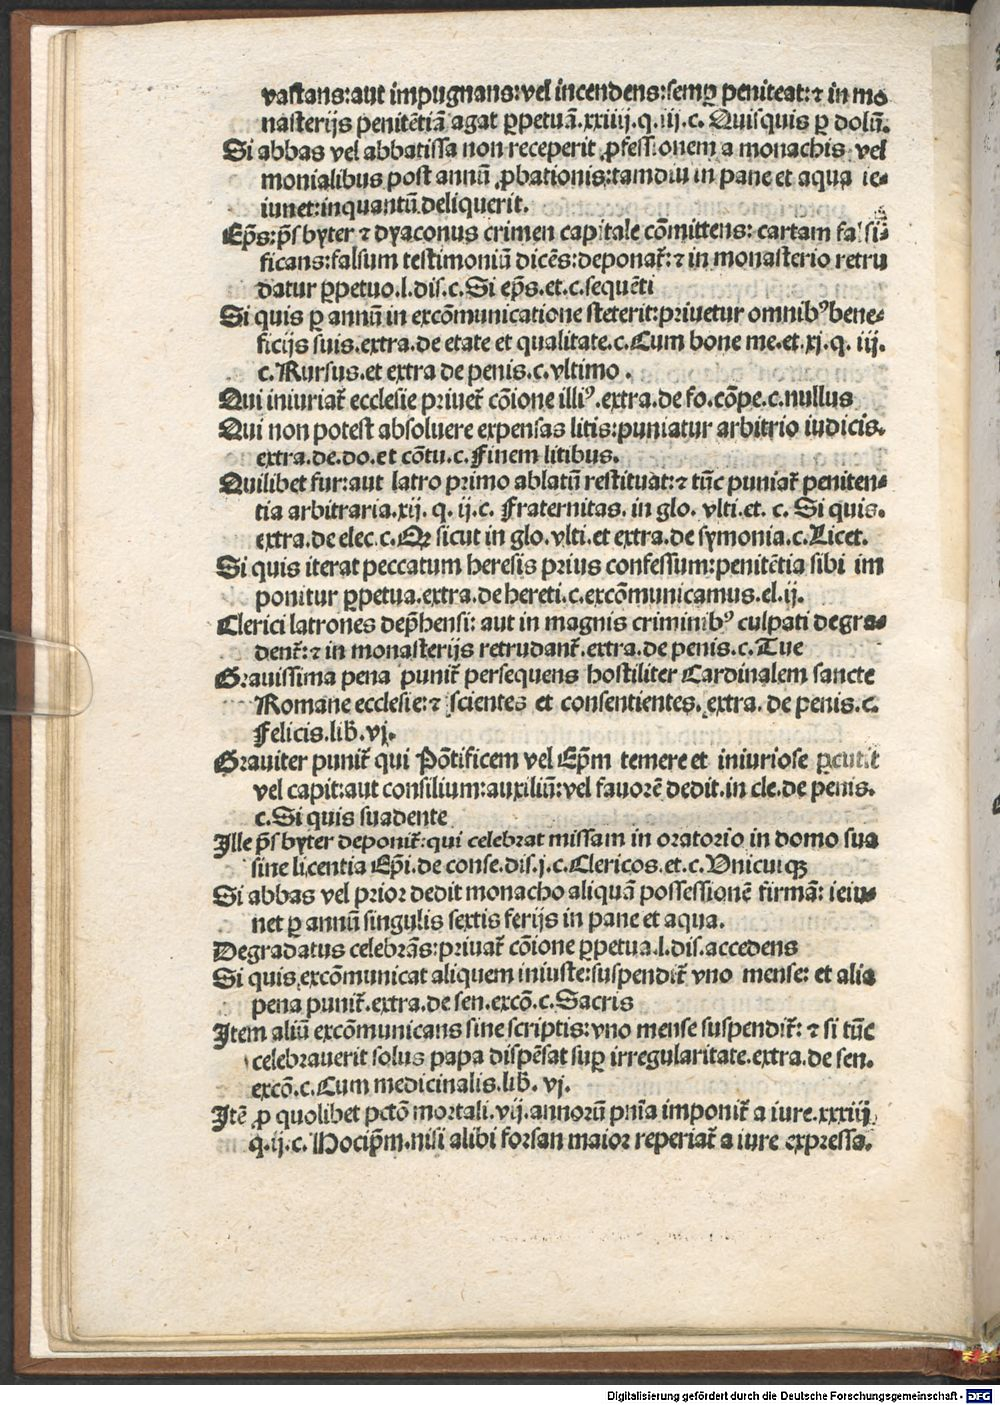 vastans:aut impugnans:vel incendens:semꝑ peniteat:⁊ in mo
nasterijs penitētiā agat ꝑpetuā.xxiiij.q.iij.c. Quisquis ꝑ dolū.
Si abbas vel abbatissa non receperit ꝓfessionem a monachis vel
monialibus post annū ꝓbationis:tamdiu in pane et aqua ie⸗
iunet:inquantū deliquerit.
Ep̄s:p̄sbyter ⁊ dyaconus crimen capitale cōmittens: cartam falsi⸗
ficans:falsum testimoniū dicēs:deponat̄:⁊ in monasterio retru
datur ꝑpetuo.l.dis.c.Si ep̄s.et.c.sequēti
Si quis ꝑ annū in excōmunicatione steterit:priuetur omnibꝰ bene⸗
ficijs suis.extra.de etate et qualitate.c.Cum bone me.et.xj.q. iij.
c.Rursus.et extra de penis.c.vltimo.
Qui iniuriat̄ ecclesie priuet̄ cōione illiꝰ.extra.de fo.cōpe.c.nullus
Qui non potest absoluere expensas litis:puniatur arbitrio iudicis.
extra.de.do.et cōtu.c.Finem litibus.
Quilibet fur:aut latro primo ablatū restituat:⁊ tūc puniat̄ peniten⸗
tia arbitraria.xij. q. ij.c. Fraternitas. in glo. vlti.et. c. Si quis.
extra.de elec.c.Qꝛ sicut in glo.vlti.et extra.de symonia.c.Licet.
Si quis iterat peccatum heresis prius confessum:penitētia sibi im
ponitur ꝑpetua.extra.de hereti.c.excōmunicamus.el.ij.
Clerici latrones dep̄hensi: aut in magnis criminibꝰ culpati degra⸗
dent̄:⁊ in monasterijs retrudant̄.extra.de penis.c.Tue
Grauissima pena punit̄ persequens hostiliter Cardinalem sancte
Romane ecclesie:⁊ scientes et consentientes. extra. de penis.c.
Felicis.lib̄.vj.
Grauiter punit̄ qui Pōtificem vel Ep̄m temere et iniuriose ꝑcutit
vel capit:aut consilium:auxiliū:vel fauorē dedit.in cle.de penis.
c.Si quis suadente
Ille p̄sbyter deponit̄:qui celebrat missam in oratorio in domo sua
sine licentia Ep̄i.de conse.dis.j.c.Clericos.et.c.Vnicuiqꝫ
Si abbas vel prior dedit monacho aliquā possessionē firmā: ieiu⸗
net ꝑ annū singulis sextis ferijs in pane et aqua.
Degradatus celebrās:priuat̄ cōione ꝑpetua.l.dis.accedens
Si quis excōmunicat aliquem iniuste:suspendit̄ vno mense: et alia
pena punit̄.extra.de sen.excō.c.Sacris
Item aliū excōmunicans sine scriptis:vno mense suspendit̄: ⁊ si tūc
celebrauerit solus papa dispēsat suꝑ irregularitate.extra.de sen.
excō.c.Cum medicinalis.lib̄. vj.
Itē ꝓ quolibet pctō mortali.vij.annorū pn̄ia imponit̄ a iure.xxxiij
q.ij.c. Hocip̄m.nisi alibi forsan maior reperiat̄ a iure expressa.
Digitalisierung gefördert durch die Deutsche Forschungsgemeinschaft - DFG